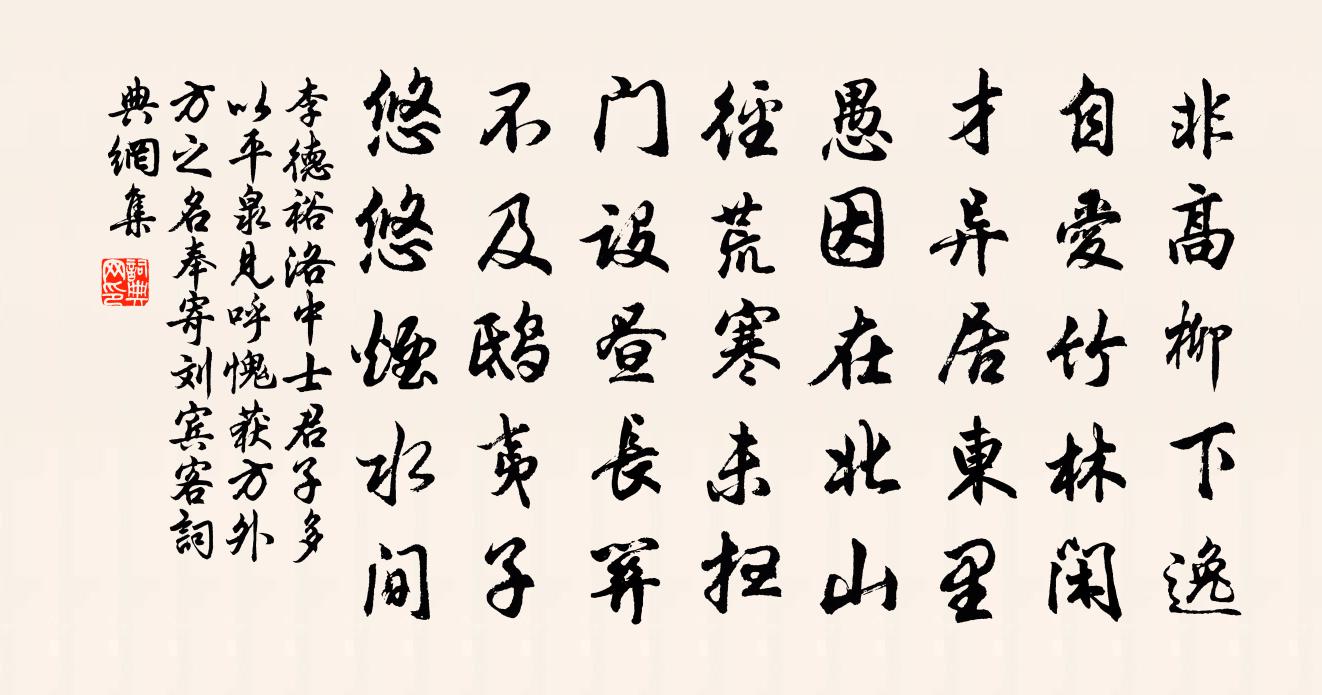 非高柳下逸
自愛竹林閑
才异居東里
愚因在北山
徑荒寒未掃
门设昼長関
不及鸱夷子
悠悠煙水间
李德裕洛中士君子多
以平泉見呼愧获方外
方之名奉寄刘宾客詞
典網集
詞典
网印